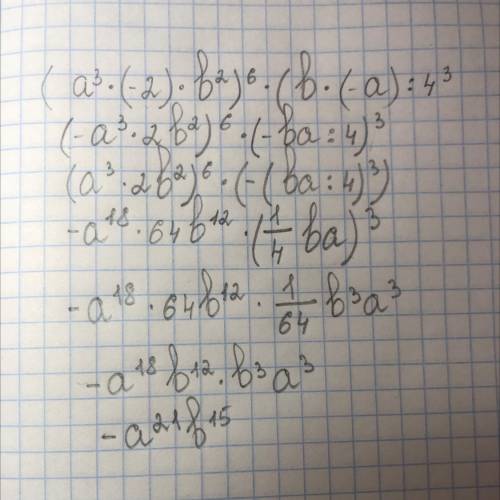 ( a³·(-2)·b²)⁶·(b·(-a):4³
(-a³·2b²)⁶·(-ba:4)³
(a³·2b²)⁶·(-(ba:4)³)
-a¹⁸·64b¹²·(1/4 ba)³
-a¹⁸·64b¹²·1/64 b³a³
-a¹⁸b¹²·b³a³
-a²¹b¹⁵